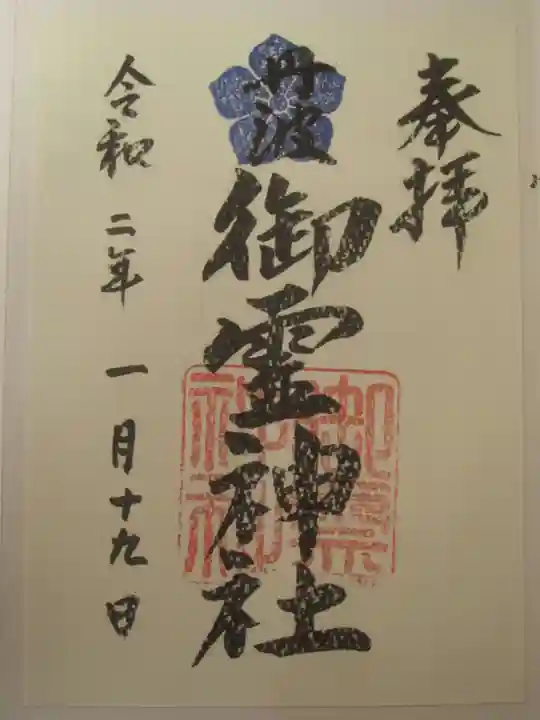 奉拝
丹波
御霊神社
令和 二年 一月十九日